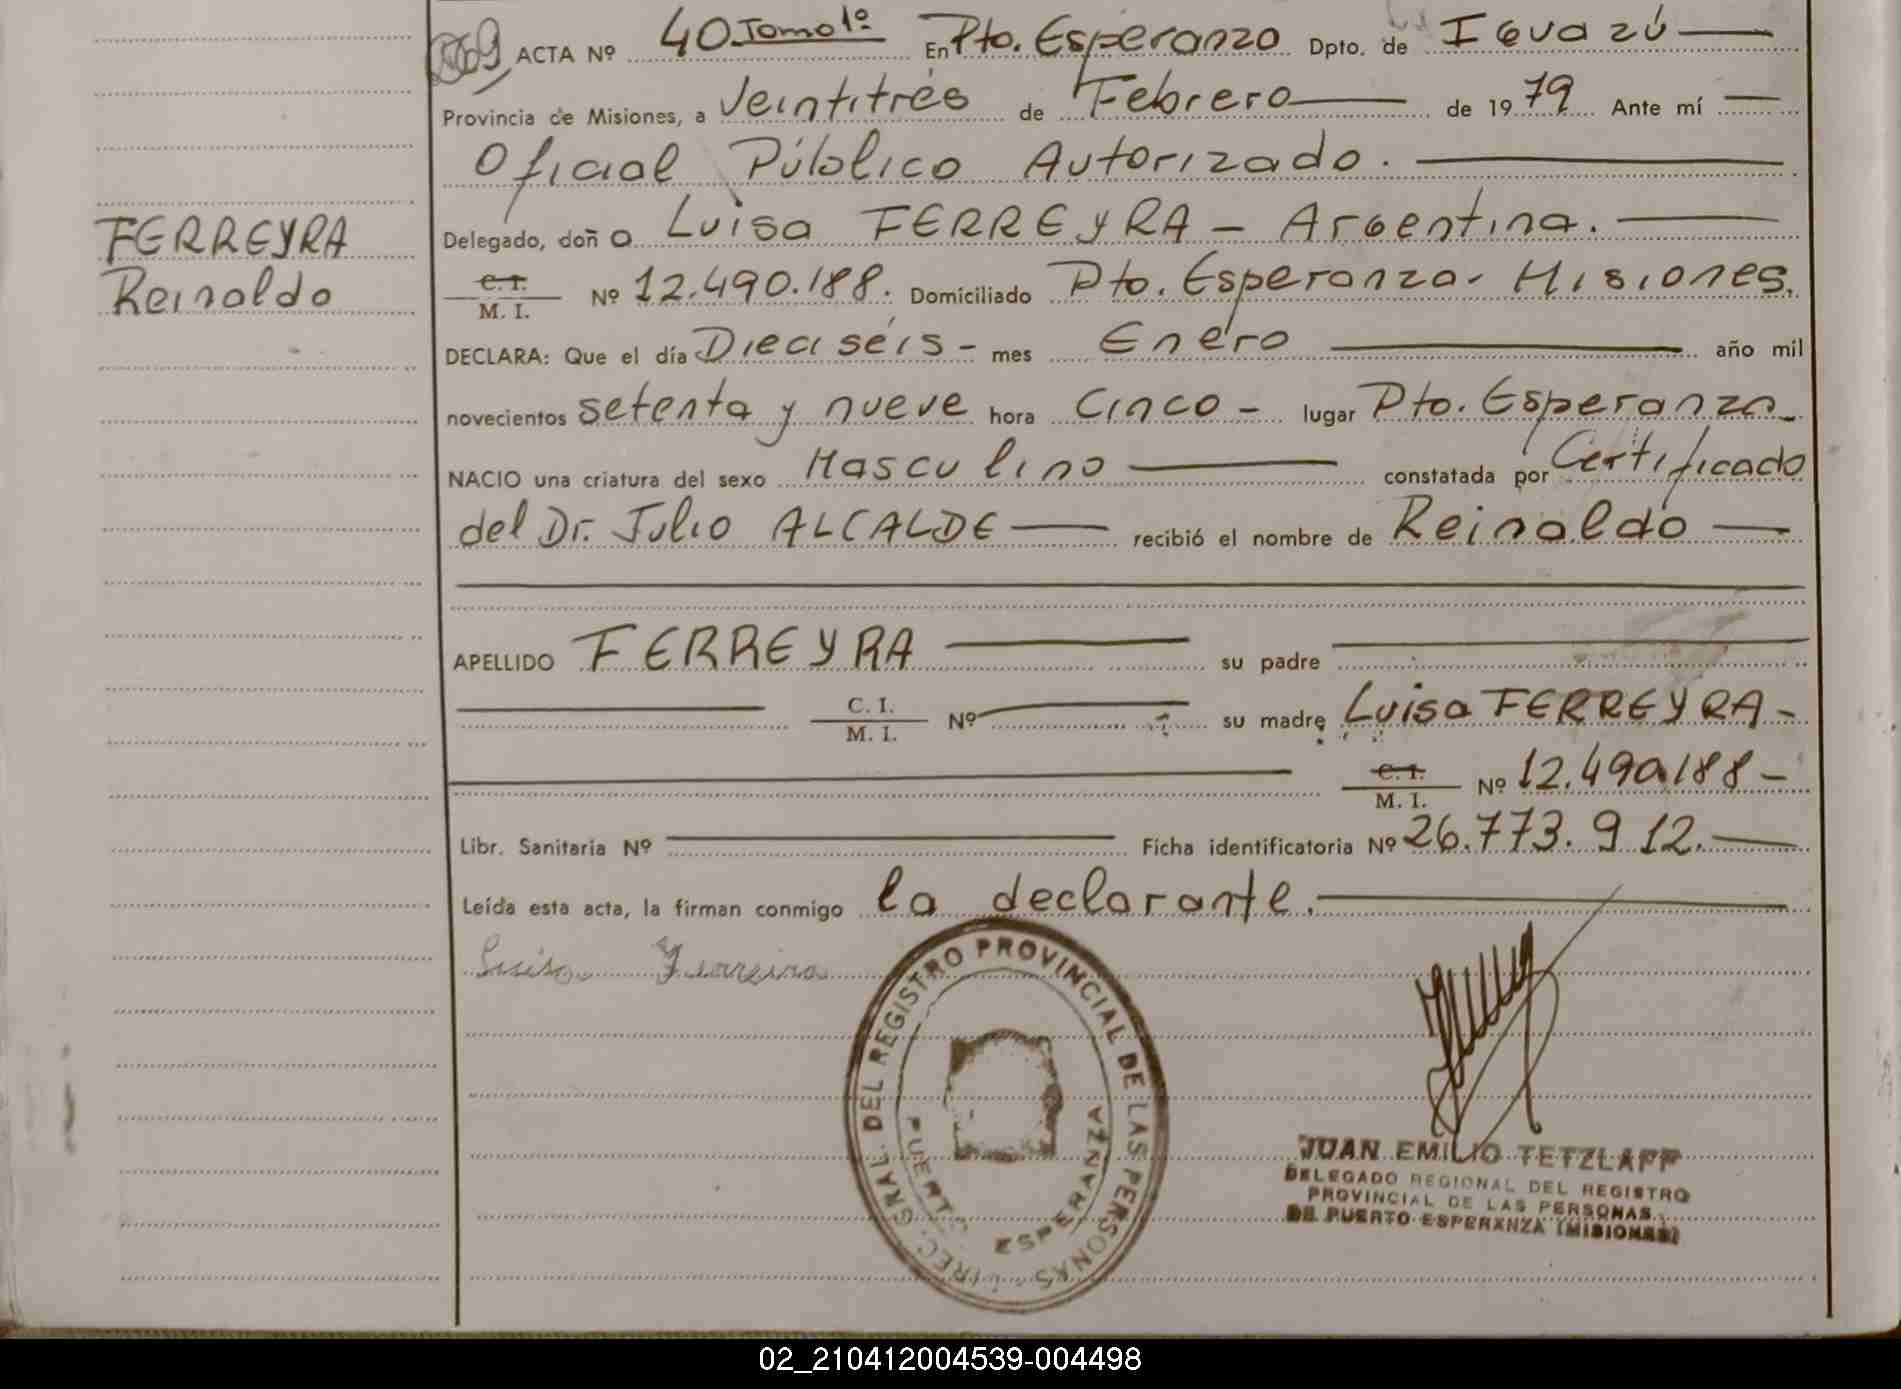 ACTA Nº 40 Tomo 1º En Pto. Esperanza Dpto. de Iguazú
Provincia de Misiones, a Veintitrés de Febrero de 19 79 Ante mí
Oficial Público Autorizado.
FERREYRA
Reinaldo
Delegado, doña Luisa FERREYRA - Argentina.
C.I.
M. I. Nº 12.490.188. Domiciliado Pto. Esperanza - Misiones.
DECLARA: Que el día Dieciséis - mes Enero año mil
novecientos setenta y nueve hora Cinco - lugar Pto. Esperanza -
NACIO una criatura del sexo Masculino constatada por Certificado
del Dr. Julio ALCALDE recibió el nombre de Reinaldo
APELLIDO FERREYRA su padre
C. I.
M. I. Nº su madre Luisa FERREYRA -
C.I.
M. I. Nº 12.490.188 -
Libr. Sanitaria Nº Ficha identificatoria Nº 26.773.912.
Leída esta acta, la firman conmigo la declarante.
Luisa Ferreira
DIREC. GRAL. DEL REGISTRO PROVINCIAL DE LAS PERSONAS
PUERTO ESPERANZA
JUAN EMILIO TETZLAFF
DELEGADO REGIONAL DEL REGISTRO
PROVINCIAL DE LAS PERSONAS
DE PUERTO ESPERANZA (MISIONES)
02_210412004539-004498